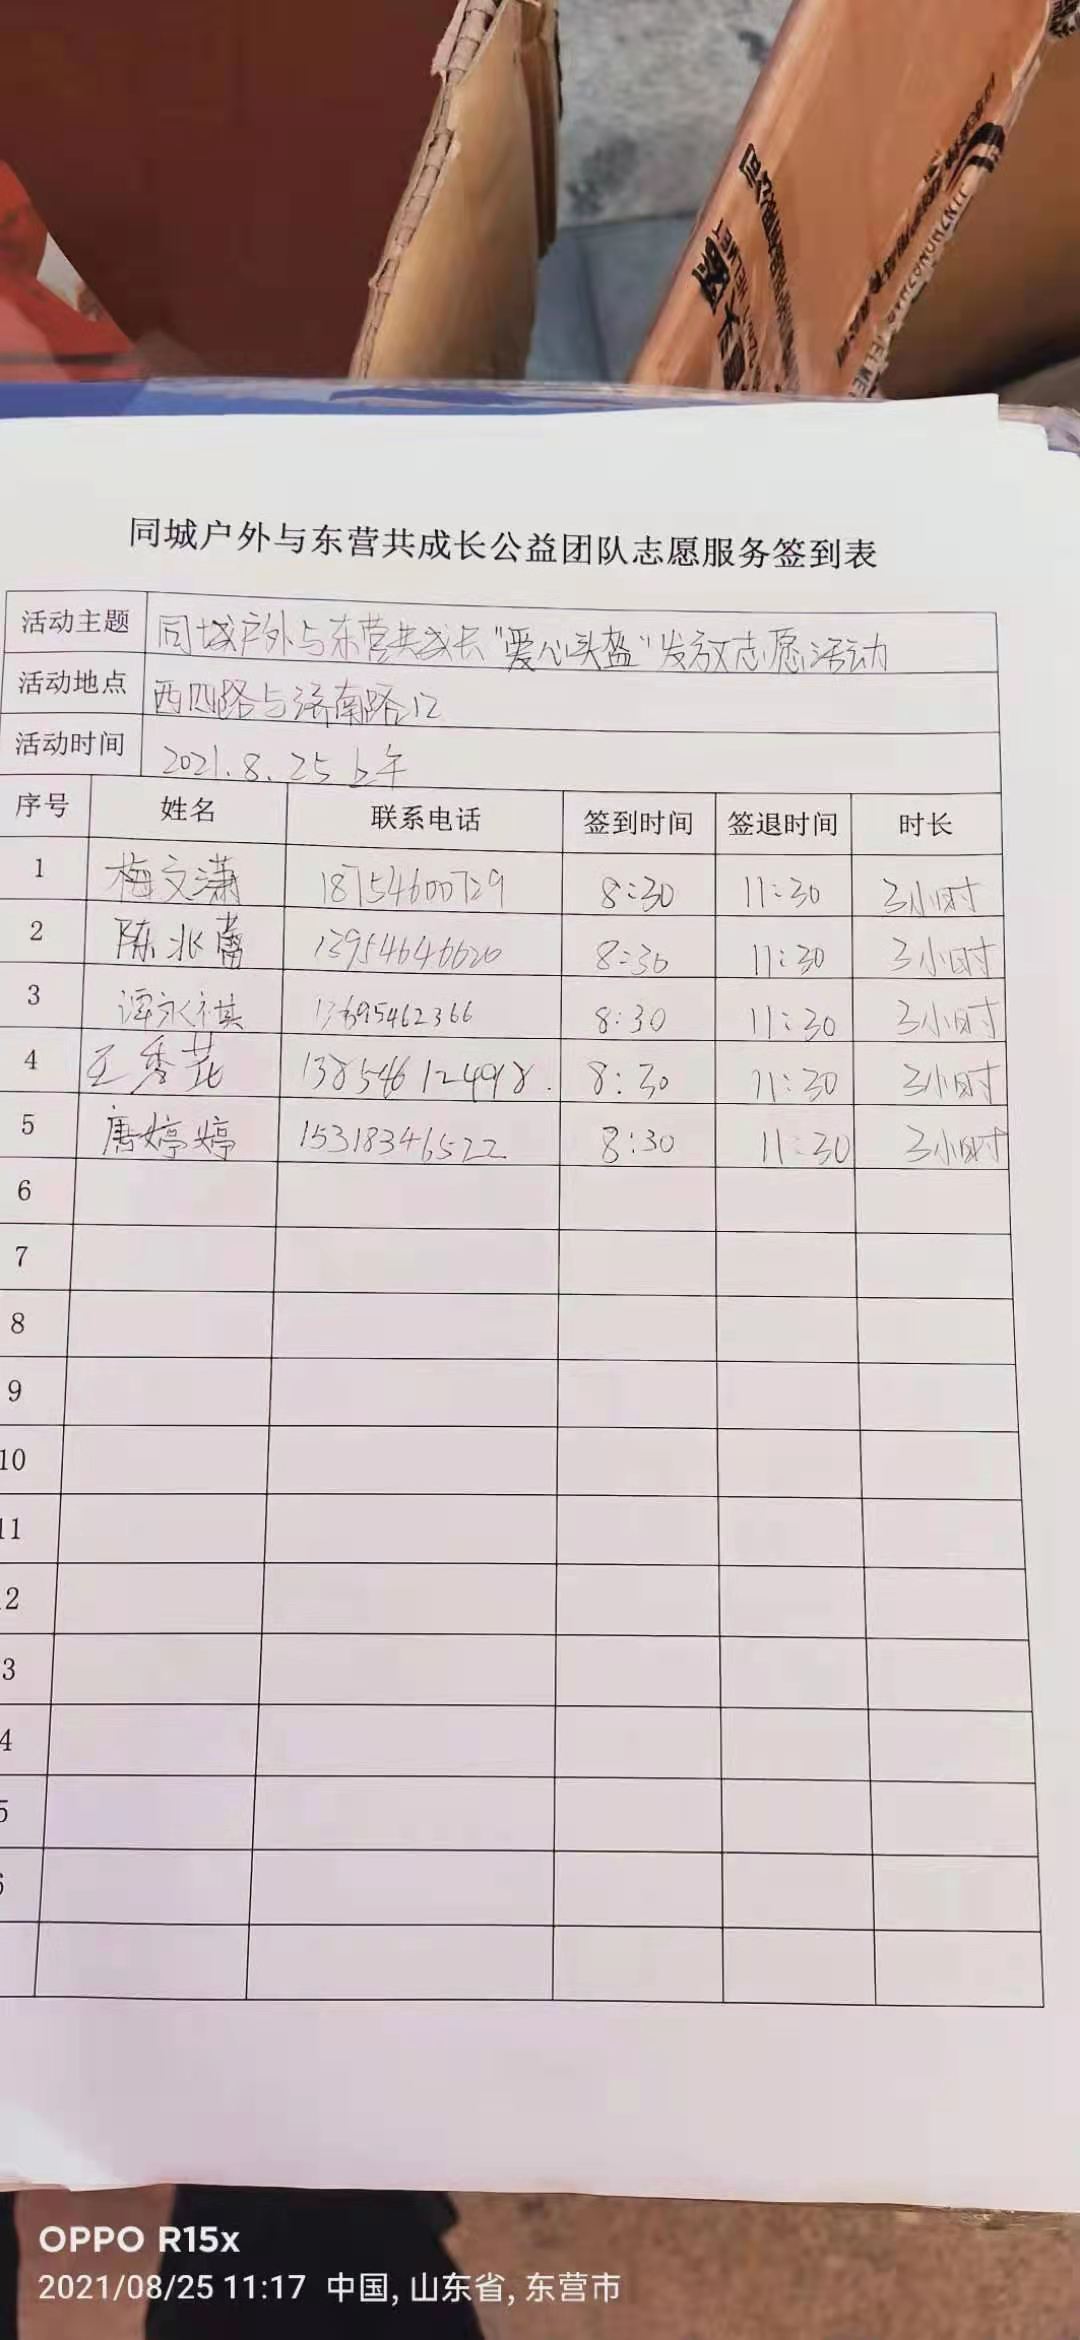 同城户外与东营共成长公益团队志愿服务签到表
活动主题 同城户外与东营共成长“爱心头盔”发放志愿活动
活动地点 西四路与济南路口
活动时间 2021.8.25上午
序号 姓名 联系电话 签到时间 签退时间 时长
1 梅文潇 18754600729 8:30 11:30 3小时
2 陈兆 13954646620 8:30 11:30 3小时
3 谭永祺 13695462366 8:30 11:30 3小时
4 王秀花 13854612498. 8:30 11:30 3小时
5 唐婷婷 15318346522 8:30 11:30 3小时
6
7
8
9
10
11
2
3
4
5
6
OPPO R15x
2021/08/25 11:17 中国, 山东省, 东营市